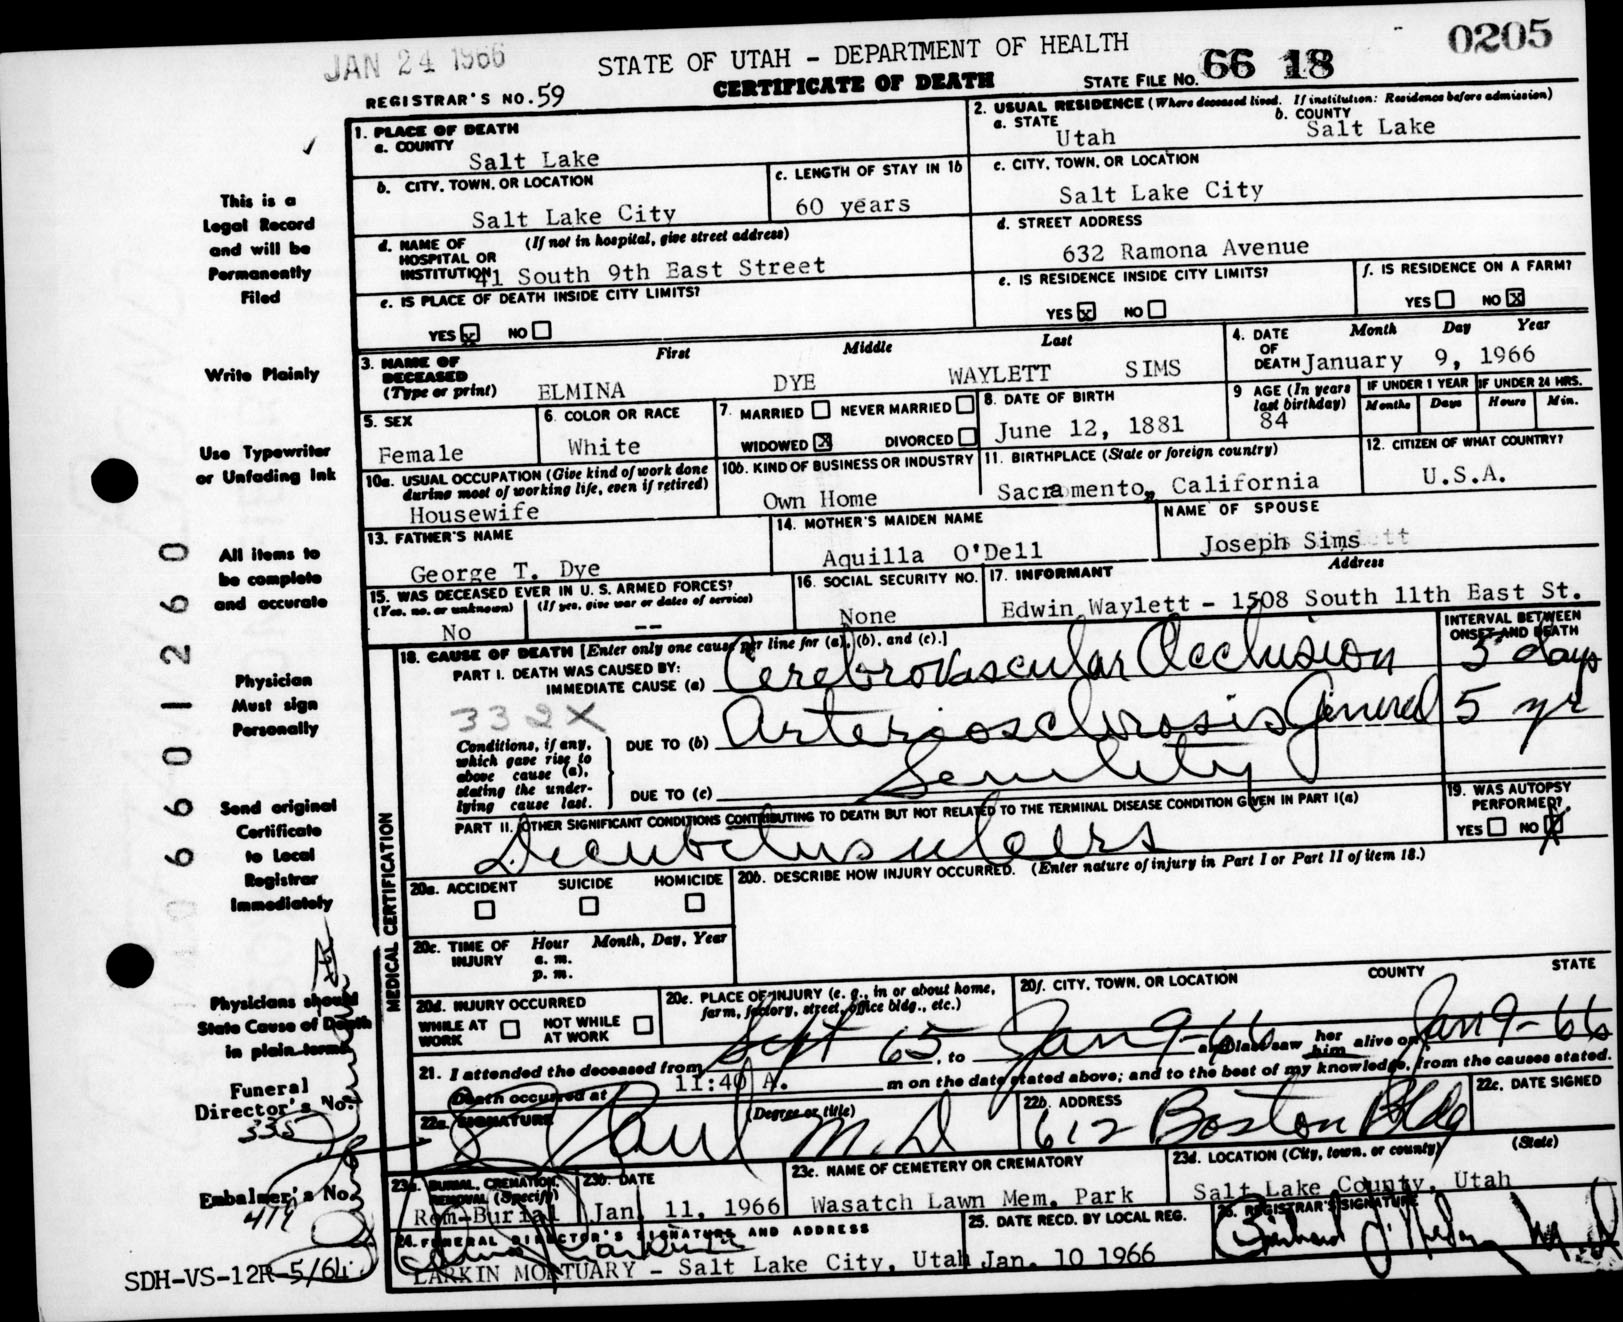 JAN 24 1966
STATE OF UTAH - DEPARTMENT OF HEALTH
0205
CERTIFICATE OF DEATH
STATE FILE NO. 66 18
REGISTRAR'S NO. 59
1. PLACE OF DEATH
a. COUNTY
Salt Lake
2. USUAL RESIDENCE (Where deceased lived. If institution: Residence before admission)
a. STATE
Utah
b. COUNTY
Salt Lake
b. CITY, TOWN, OR LOCATION
Salt Lake City
c. LENGTH OF STAY IN 1b
60 years
c. CITY, TOWN, OR LOCATION
Salt Lake City
d. NAME OF HOSPITAL OR INSTITUTION
(If not in hospital, give street address)
41 South 9th East Street
d. STREET ADDRESS
632 Ramona Avenue
e. IS PLACE OF DEATH INSIDE CITY LIMITS?
YES x NO
e. IS RESIDENCE INSIDE CITY LIMITS?
YES x NO
f. IS RESIDENCE ON A FARM?
YES NO x
3. NAME OF DECEASED (Type or print)
First Middle Last
ELMINA DYE WAYLETT SIMS
4. DATE OF DEATH
Month Day Year
January 9, 1966
5. SEX
Female
6. COLOR OR RACE
White
7. MARRIED NEVER MARRIED
WIDOWED x DIVORCED
8. DATE OF BIRTH
June 12, 1881
9 AGE (In years last birthday)
84
IF UNDER 1 YEAR
Months Days
IF UNDER 24 HRS.
Hours Min.
10a. USUAL OCCUPATION (Give kind of work done during most of working life, even if retired)
Housewife
10b. KIND OF BUSINESS OR INDUSTRY
Own Home
11. BIRTHPLACE (State or foreign country)
Sacramento, California
12. CITIZEN OF WHAT COUNTRY?
U.S.A.
13. FATHER'S NAME
George T. Dye
14. MOTHER'S MAIDEN NAME
Aquilla O'Dell
NAME OF SPOUSE
Joseph Sims
15. WAS DECEASED EVER IN U. S. ARMED FORCES?
(Yes, no, or unknown) (If yes, give war or dates of service)
No --
16. SOCIAL SECURITY NO.
None
17. INFORMANT Address
Edwin Waylett - 1508 South 11th East St.
18. CAUSE OF DEATH [Enter only one cause per line for (a), (b), and (c).]
INTERVAL BETWEEN ONSET AND DEATH
PART I. DEATH WAS CAUSED BY:
IMMEDIATE CAUSE (a) Cerebrovascular Occlusion 3 days
332X
Conditions, if any, which gave rise to above cause (a), stating the underlying cause last.
DUE TO (b) Arteriosclerosis General 5 yr
DUE TO (c) Senility
PART II. OTHER SIGNIFICANT CONDITIONS CONTRIBUTING TO DEATH BUT NOT RELATED TO THE TERMINAL DISEASE CONDITION GIVEN IN PART I(a)
Decubitus ulcers
19. WAS AUTOPSY PERFORMED?
YES NO X
MEDICAL CERTIFICATION
20a. ACCIDENT SUICIDE HOMICIDE
20b. DESCRIBE HOW INJURY OCCURRED. (Enter nature of injury in Part I or Part II of item 18.)
20c. TIME OF INJURY
Hour Month, Day, Year
a. m.
p. m.
20d. INJURY OCCURRED
WHILE AT WORK NOT WHILE AT WORK
20e. PLACE OF INJURY (e. g., in or about home, farm, factory, street, office bldg., etc.)
20f. CITY, TOWN, OR LOCATION COUNTY STATE
21. I attended the deceased from Sept 65, to Jan 9-66 and last saw her him alive on Jan 9-66
Death occurred at 11:40 A. m on the date stated above; and to the best of my knowledge, from the causes stated.
22a. SIGNATURE (Degree or title)
Paul M.D
22b. ADDRESS
612 Boston Bldg
22c. DATE SIGNED
23a. BURIAL, CREMATION, REMOVAL (Specify)
Rem-Burial
23b. DATE
Jan. 11, 1966
23c. NAME OF CEMETERY OR CREMATORY
Wasatch Lawn Mem. Park
23d. LOCATION (City, town, or county) (State)
Salt Lake County, Utah
24. FUNERAL DIRECTOR'S SIGNATURE AND ADDRESS
LARKIN MORTUARY - Salt Lake City, Utah
25. DATE RECD. BY LOCAL REG.
Jan. 10 1966
26. REGISTRAR'S SIGNATURE
M.D
This is a
Legal Record
and will be
Permanently
Filed
Write Plainly
Use Typewriter
or Unfading Ink
All items to
be complete
and accurate
Physician
Must sign
Personally
Send original
Certificate
to Local
Registrar
Immediately
Physicians should
State Cause of Death
in plain terms
Funeral
Director's No.
335
Embalmer's No.
411
SDH-VS-12R-5/64